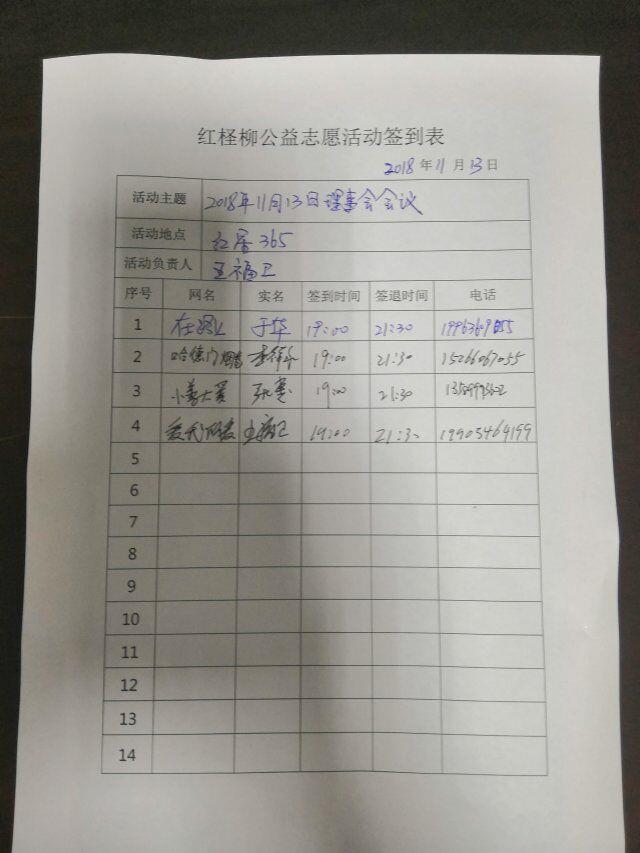 红柽柳公益志愿活动签到表
2018年11月13日
活动主题 2018年11月13日理事会会议
活动地点 红居365
活动负责人 王福卫
序号 网名 实名 签到时间 签退时间 电话
1 于华 19:00 21:30
2 哈德门 19:00 21:30 15266067055
3 19:00 21:30
4 19:00 21:30 19905464199
5
6
7
8
9
10
11
12
13
14